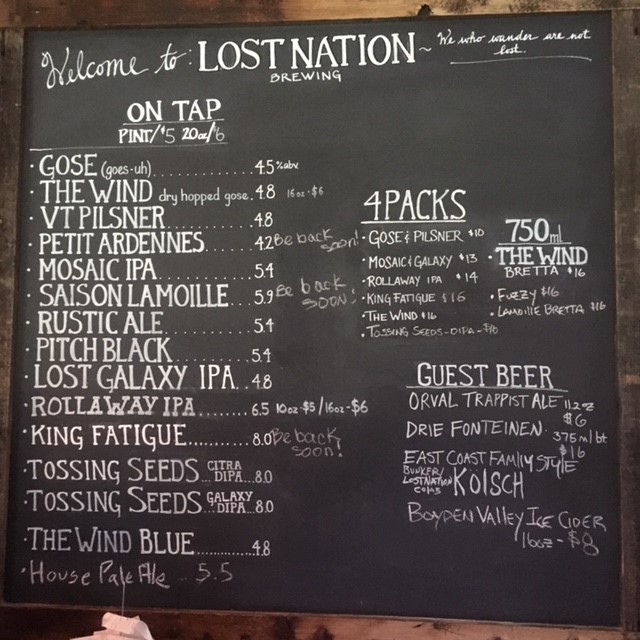 Welcome to: LOST NATION ~ We who wander are not lost.
BREWING
ON TAP
PINT/$5 20oz/$6
· GOSE (goes-uh)............4.5 %abv
· THE WIND dry hopped gose. 4.8 16oz-$6
· VT PILSNER............4.8
· PETIT ARDENNES.......4.2 Be back soon!
· MOSAIC IPA............5.4
· SAISON LAMOILLE...5.9 Be back soon!
· RUSTIC ALE............5.4
· PITCH BLACK..........5.4
· LOST GALAXY IPA..4.8
· ROLLAWAY IPA.......6.5 10oz-$5/16oz-$6
· KING FATIGUE..........8.0 Be back soon!
· TOSSING SEEDS...CITRA DIPA..8.0
· TOSSING SEEDS..GALAXY DIPA..8.0
· THE WIND BLUE..........4.8
· House Pale Ale... 5.5
4 PACKS
· GOSE & PILSNER $10
· MOSAIC & GALAXY $13
· ROLLAWAY IPA $14
· KING FATIGUE $16
· THE WIND $16
· TOSSING SEEDS-DIPA-$18
750ml
· THE WIND
BRETTA $16
· FUZZY $16
· LAMOILLE BRETTA $16
GUEST BEER
ORVAL TRAPPIST ALE 11.2oz
$6
DRIE FONTEINEN 375ml bt
$16
EAST COAST FAMILY STYLE
BUNKER/
LOST NATION
COLAB KÖLSCH
BOYDEN VALLEY ICE CIDER
16oz-$8